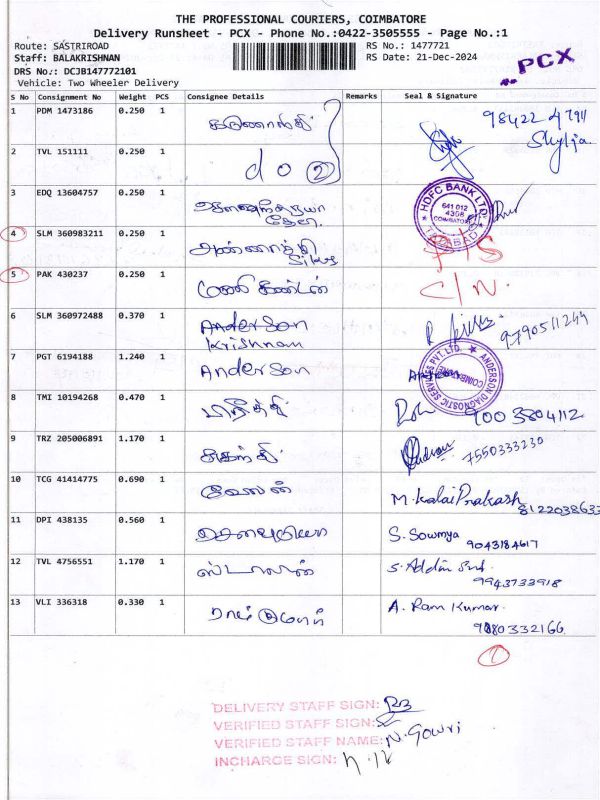 THE PROFESSIONAL COURIERS, COIMBATORE
Delivery Runsheet - PCX - Phone No.:0422-3505555 - Page No.:1
Route: SASTRIROAD RS No.: 1477721
Staff: BALAKRISHNAN RS Date: 21-Dec-2024
PCX
DRS No.: DCJB147772101
Vehicle: Two Wheeler Delivery
S No Consignment No Weight PCS Consignee Details Remarks Seal & Signature
1 PDM 1473186 0.250 1 98422 47911
2 TVL 151111 0.250 1 do 2
3 EDQ 13604757 0.250 1
HDFC BANK LTD.
641 012
4308
COIMBATORE
TATABAD
4 SLM 360983211 0.250 1
5 PAK 430237 0.250 1 C/N.
6 SLM 360972488 0.370 1 Anderson
Krishnan
7 PGT 6194188 1.240 1 Anderson
ANDERSON DIAGNOSTIC SERVICES PVT. LTD.
COIMBATORE
8 TMI 10194268 0.470 1 பாரதி 9003804112
9 TRZ 205006891 1.170 1 7550333230
10 TCG 41414775 0.690 1 வேலன் M. Kalai Prakash
8122038633
11 DPI 438135 0.560 1 S. Sowmya
9043184617
12 TVL 4756551 1.170 1 ஸ்டாலின்
9943733918
13 VLI 336318 0.330 1 A. Ram Kumar
9080332166
1
DELIVERY STAFF SIGN:
VERIFIED STAFF SIGN:
VERIFIED STAFF NAME: N. Gowri
INCHARGE SIGN: